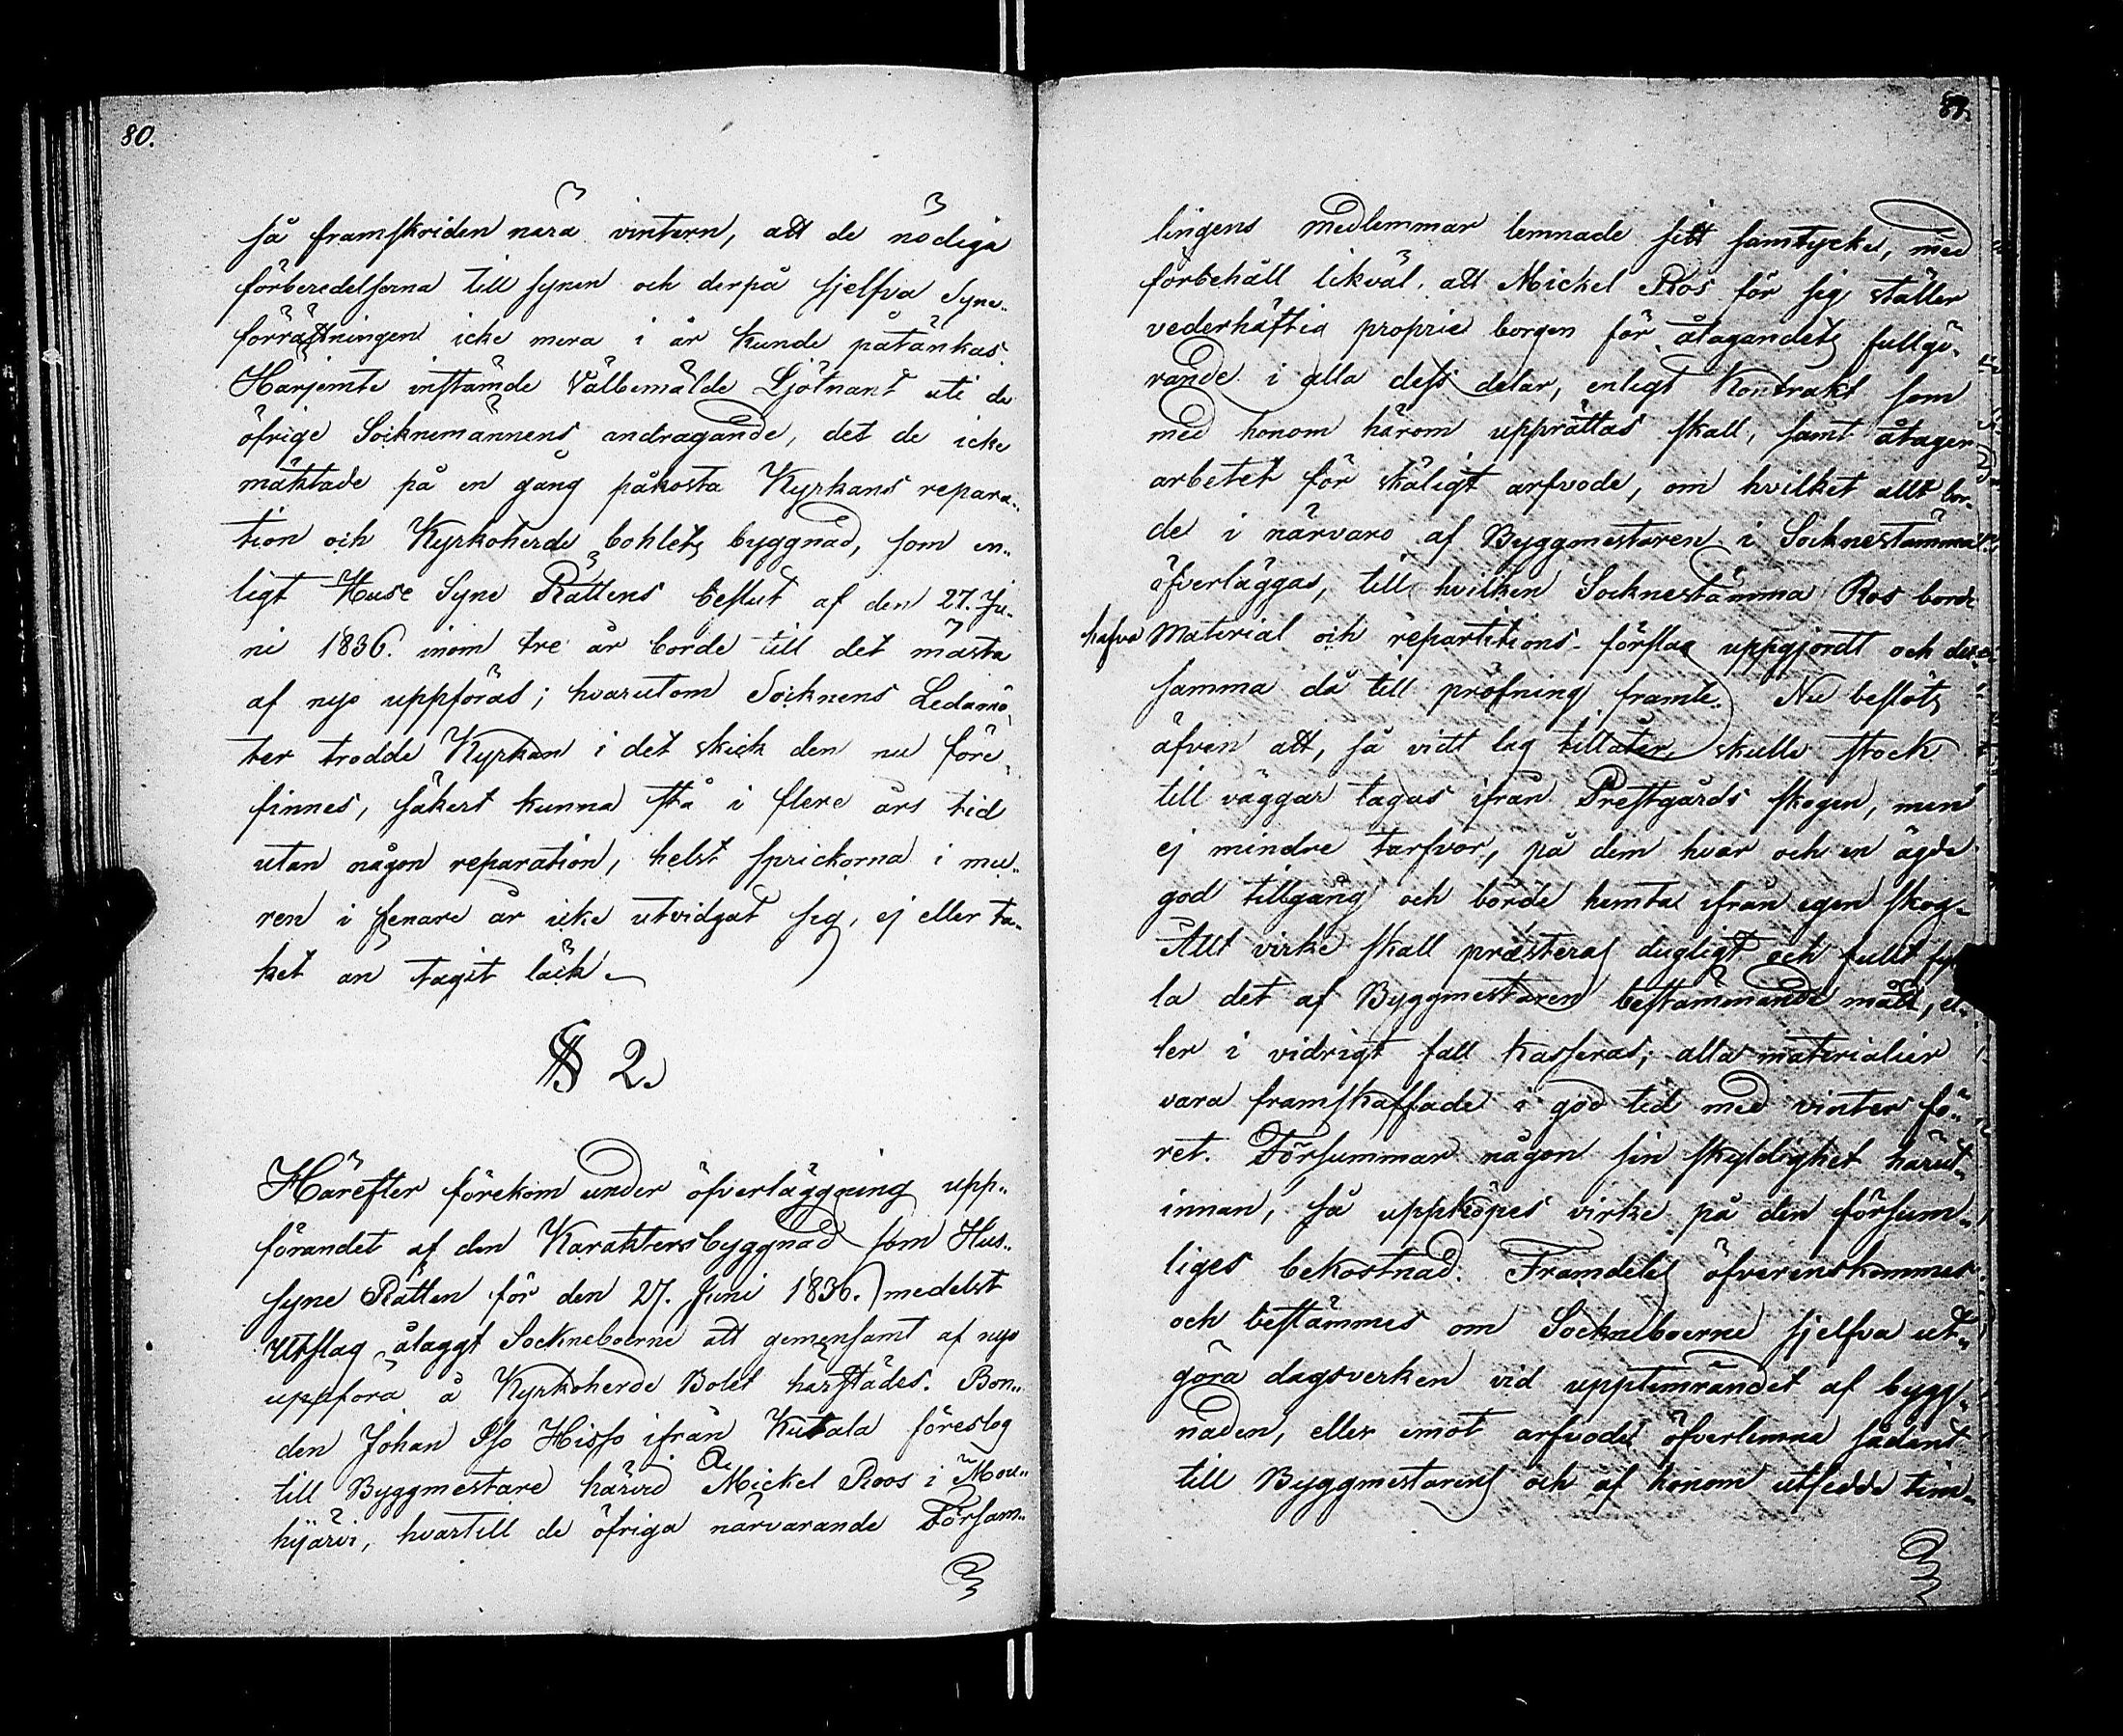 80.
så framskriden nära vintern, att de nödiga
förberedelserna till synen och derpå sjelfva Syne-
förrättningen icke mera i år kunde påtänkas
Härjemte instämde Välbemälde Ljötnant uti de
öfrige Socknemännens andragande, det de icke
mäktade på en gång påkosta Kyrkans repara-
tion och Kyrkoherde bohlets byggnad, som en-
ligt Huse Syne Rättens beslut af den 27. Ju-
ni 1836. inom tre år borde till det mästa
af nyo uppföras; hvarutom Socknens Ledamö-
ter trodde Kyrkan i det skick den nu före-
finnes, säkert kunna stå i flere års tid
utan någon reparation, helst sprickorna i mu-
ren i senare år icke utvidgat sig, ej eller ta-
ket än tagit läck.
§ 2.
Härefter förekom under öfverläggning upp-
förandet af den Karaktersbyggnad som Hus-
syne Rätten för den 27. Juni 1836. medelst
Utslag ålaggt Sockneboerne att gemensamt af nyo
uppföra å Kyrkoherde Bolet härstädes. Bon-
den Johan Isso Hisso ifrån Kutala föreslog
till Byggmestare härvid Mickel Roos i Mou-
hijärvi, hvartill de öfriga närvarande Församl-
81.
lingens medlemmar lemnade sitt samtycke, med
förbehåll likväl, att Mickel Ros för sig ställer
vederhäftig proprie borgen för åtagandets fullgö-
rande i alla dess delar, enligt Kontrakt som
med honom härom upprättas skall, samt åtager
arbetet för skäligt arfvode, om hvilket allt bor-
de i närvaro af Byggmestaren i Socknestämma
öfverläggas, till hvilken Socknestämma Ros borde
hafva Material och repartitions-förslag uppgjordt och det
samma då till pröfning framte. Nu beslöts
äfven att, så vidt lag tillåter, skulle stock
till väggar tagas ifrån Prestgårds skogen, men
ej mindre tarfvor, på dem hvar och en ägde
god tillgång och borde hemta ifrån egen skog.
Allt virke skall præsteras dugligt och fullt fyl-
la det af Byggmestaren bestämmande mått, el-
ler i vidrigt fall kasseras; alla materialier
vara framskaffade i god tid med vinter fö-
ret. Försummar någon sin skyldighet härut-
innan, så uppköpes virke på den försum-
liges bekostnad. Framdeles öfverenskommes
och bestämmes om Sockneboerne sjelfva ut-
göra dagsverken vid upptimrandet af bygg-
naden, eller emot arfvode öfverlemna sådant
till Byggmestaren och af honom utsedde tim-